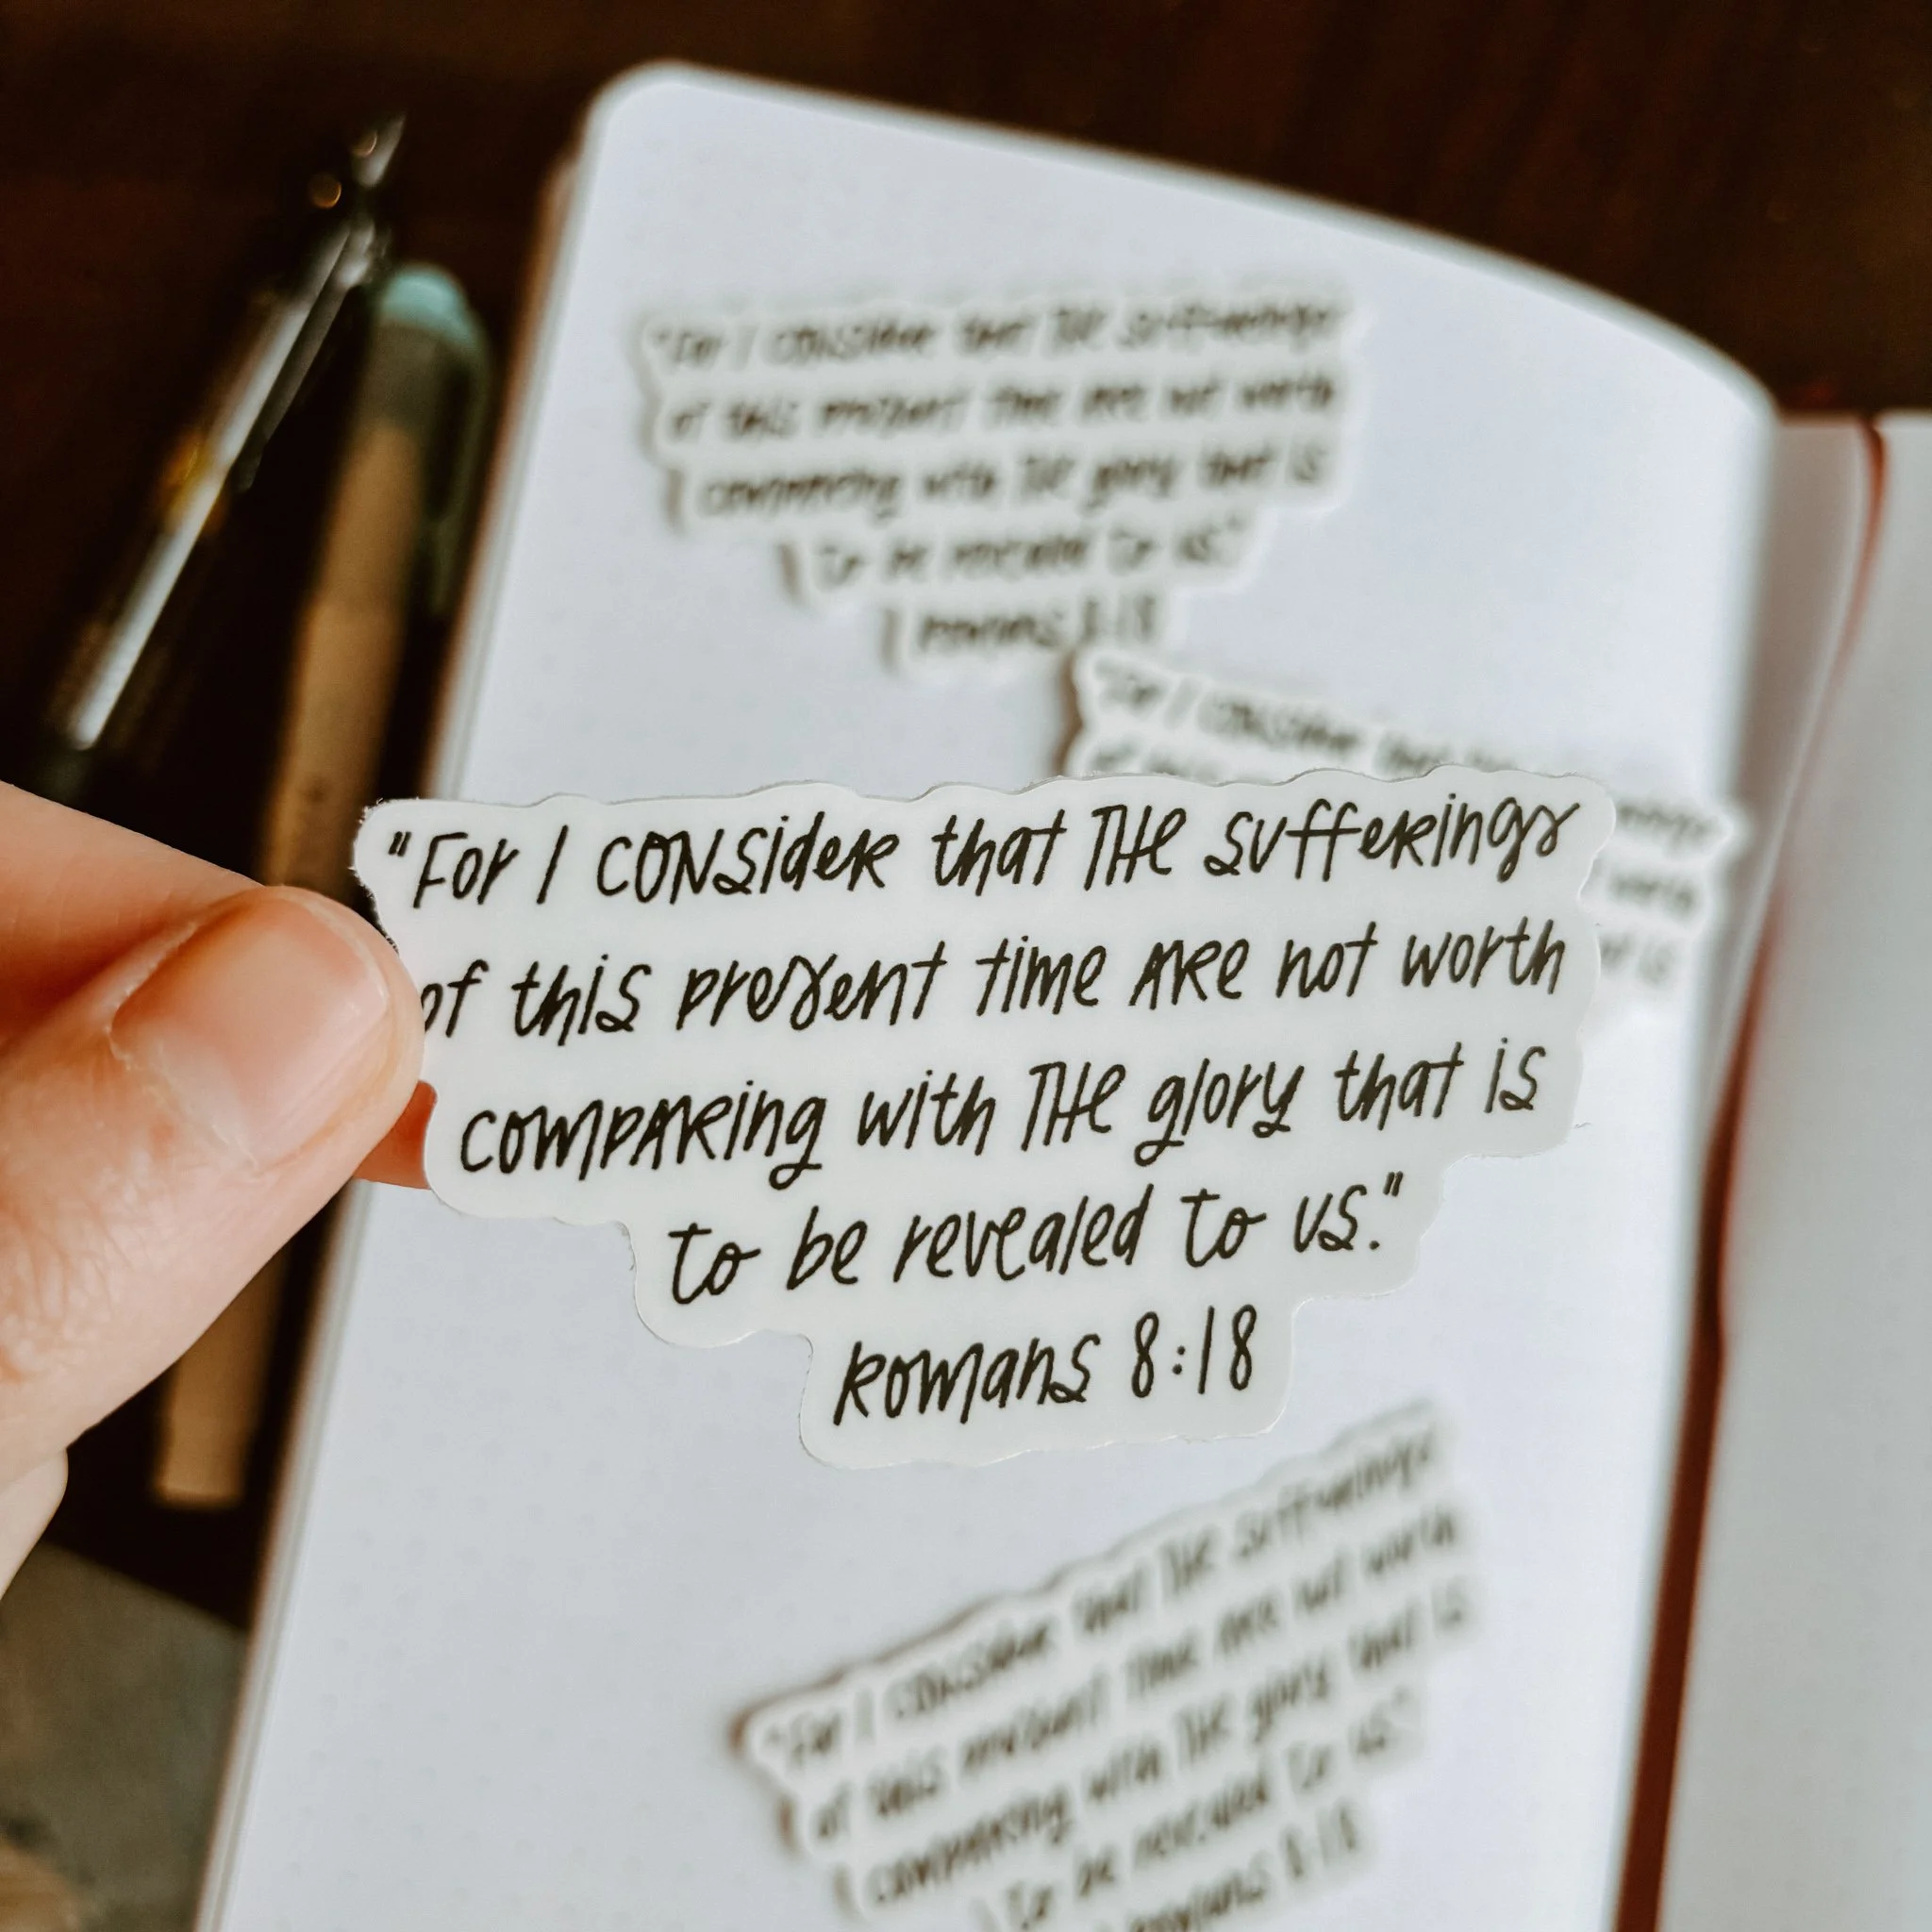 "For I consider that the sufferings
of this present time are not worth
comparing with the glory that is
to be revealed to us."
Romans 8:18
"For I consider that the sufferings
of this present time are not worth
comparing with the glory that is
to be revealed to us."
Romans 8:18
"For I consider that
"For I consider that the sufferings
of this present time are not worth
comparing with the glory that is
to be revealed to us."
Romans 8:18